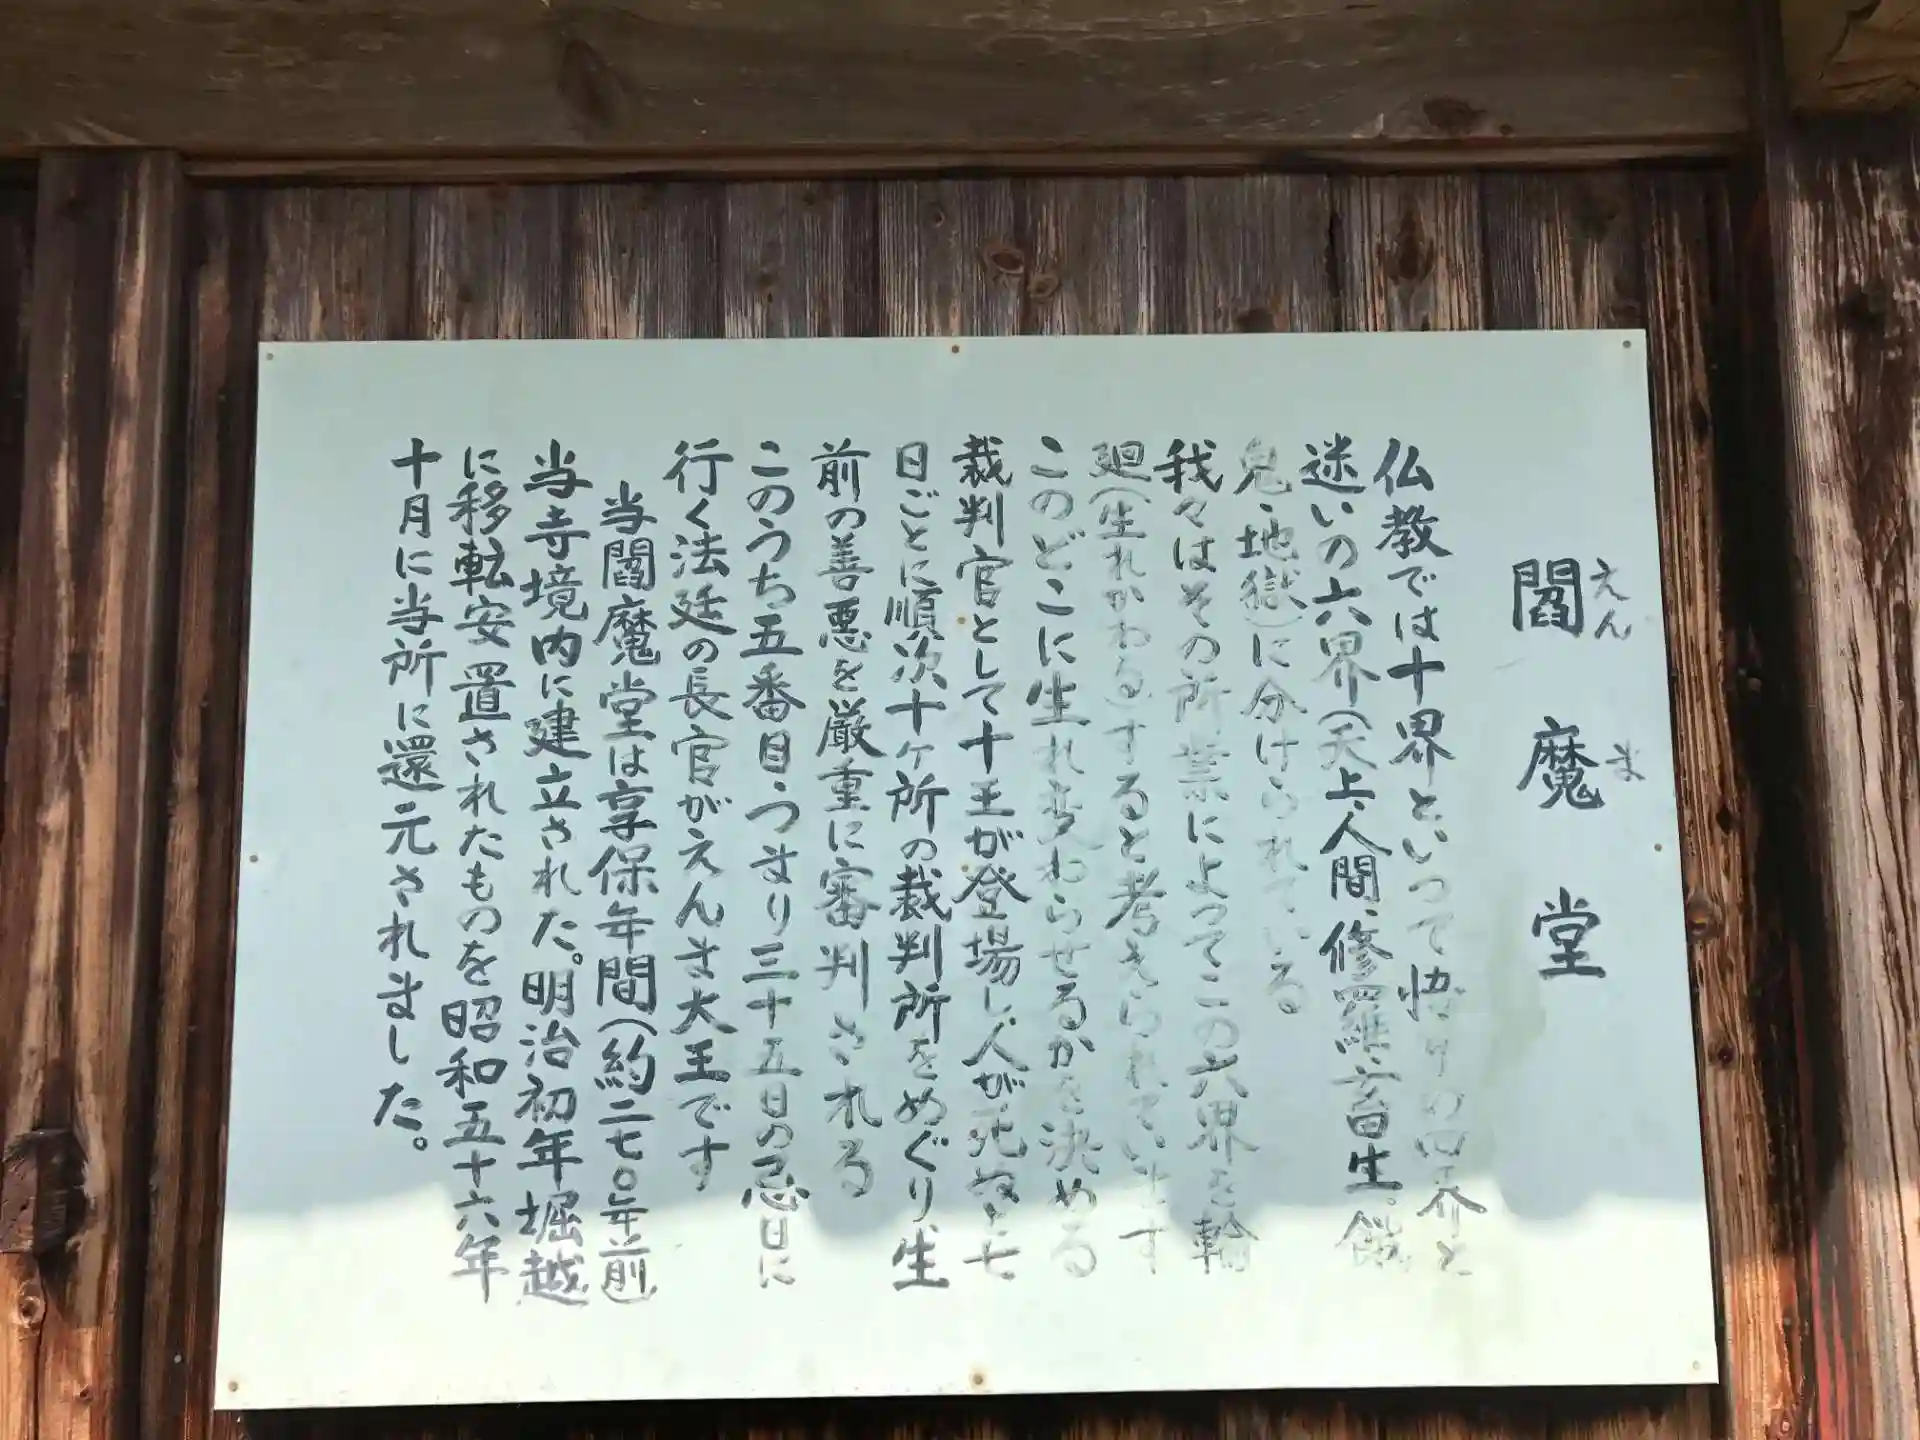 閻魔堂
えんま
仏教では十界といって悟りの四界と
迷いの六界(天上、人間、修羅、畜生。餓
鬼、地獄)に分けられている
我々はその所業によってこの六界を輪
廻(生れかわる)すると考えられています
このどこに生れ変わらせるかを決める
裁判官として十王が登場し人が死ぬと七
日ごとに順次十ヶ所の裁判所をめぐり生
前の善悪を厳重に審判される
このうち五番目・つまり三十五日の忌日に
行く法廷の長官がえんま大王です
当閻魔堂は享保年間(約二七〇年前)
当寺境内に建立された。明治初年堀越
に移転安置されたものを昭和五十六年
十月に当所に還元されました。